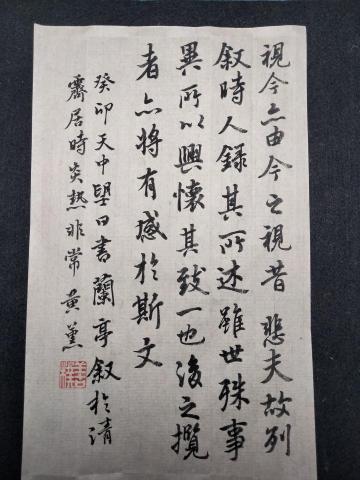 視今亦由今之視昔 悲夫故列
敘時人錄其所述雖世殊事
異所以興懷其致一也後之攬
者亦將有感於斯文
癸卯天中塱日書蘭亭敘於清
齋居時炎熱非常 黃薰